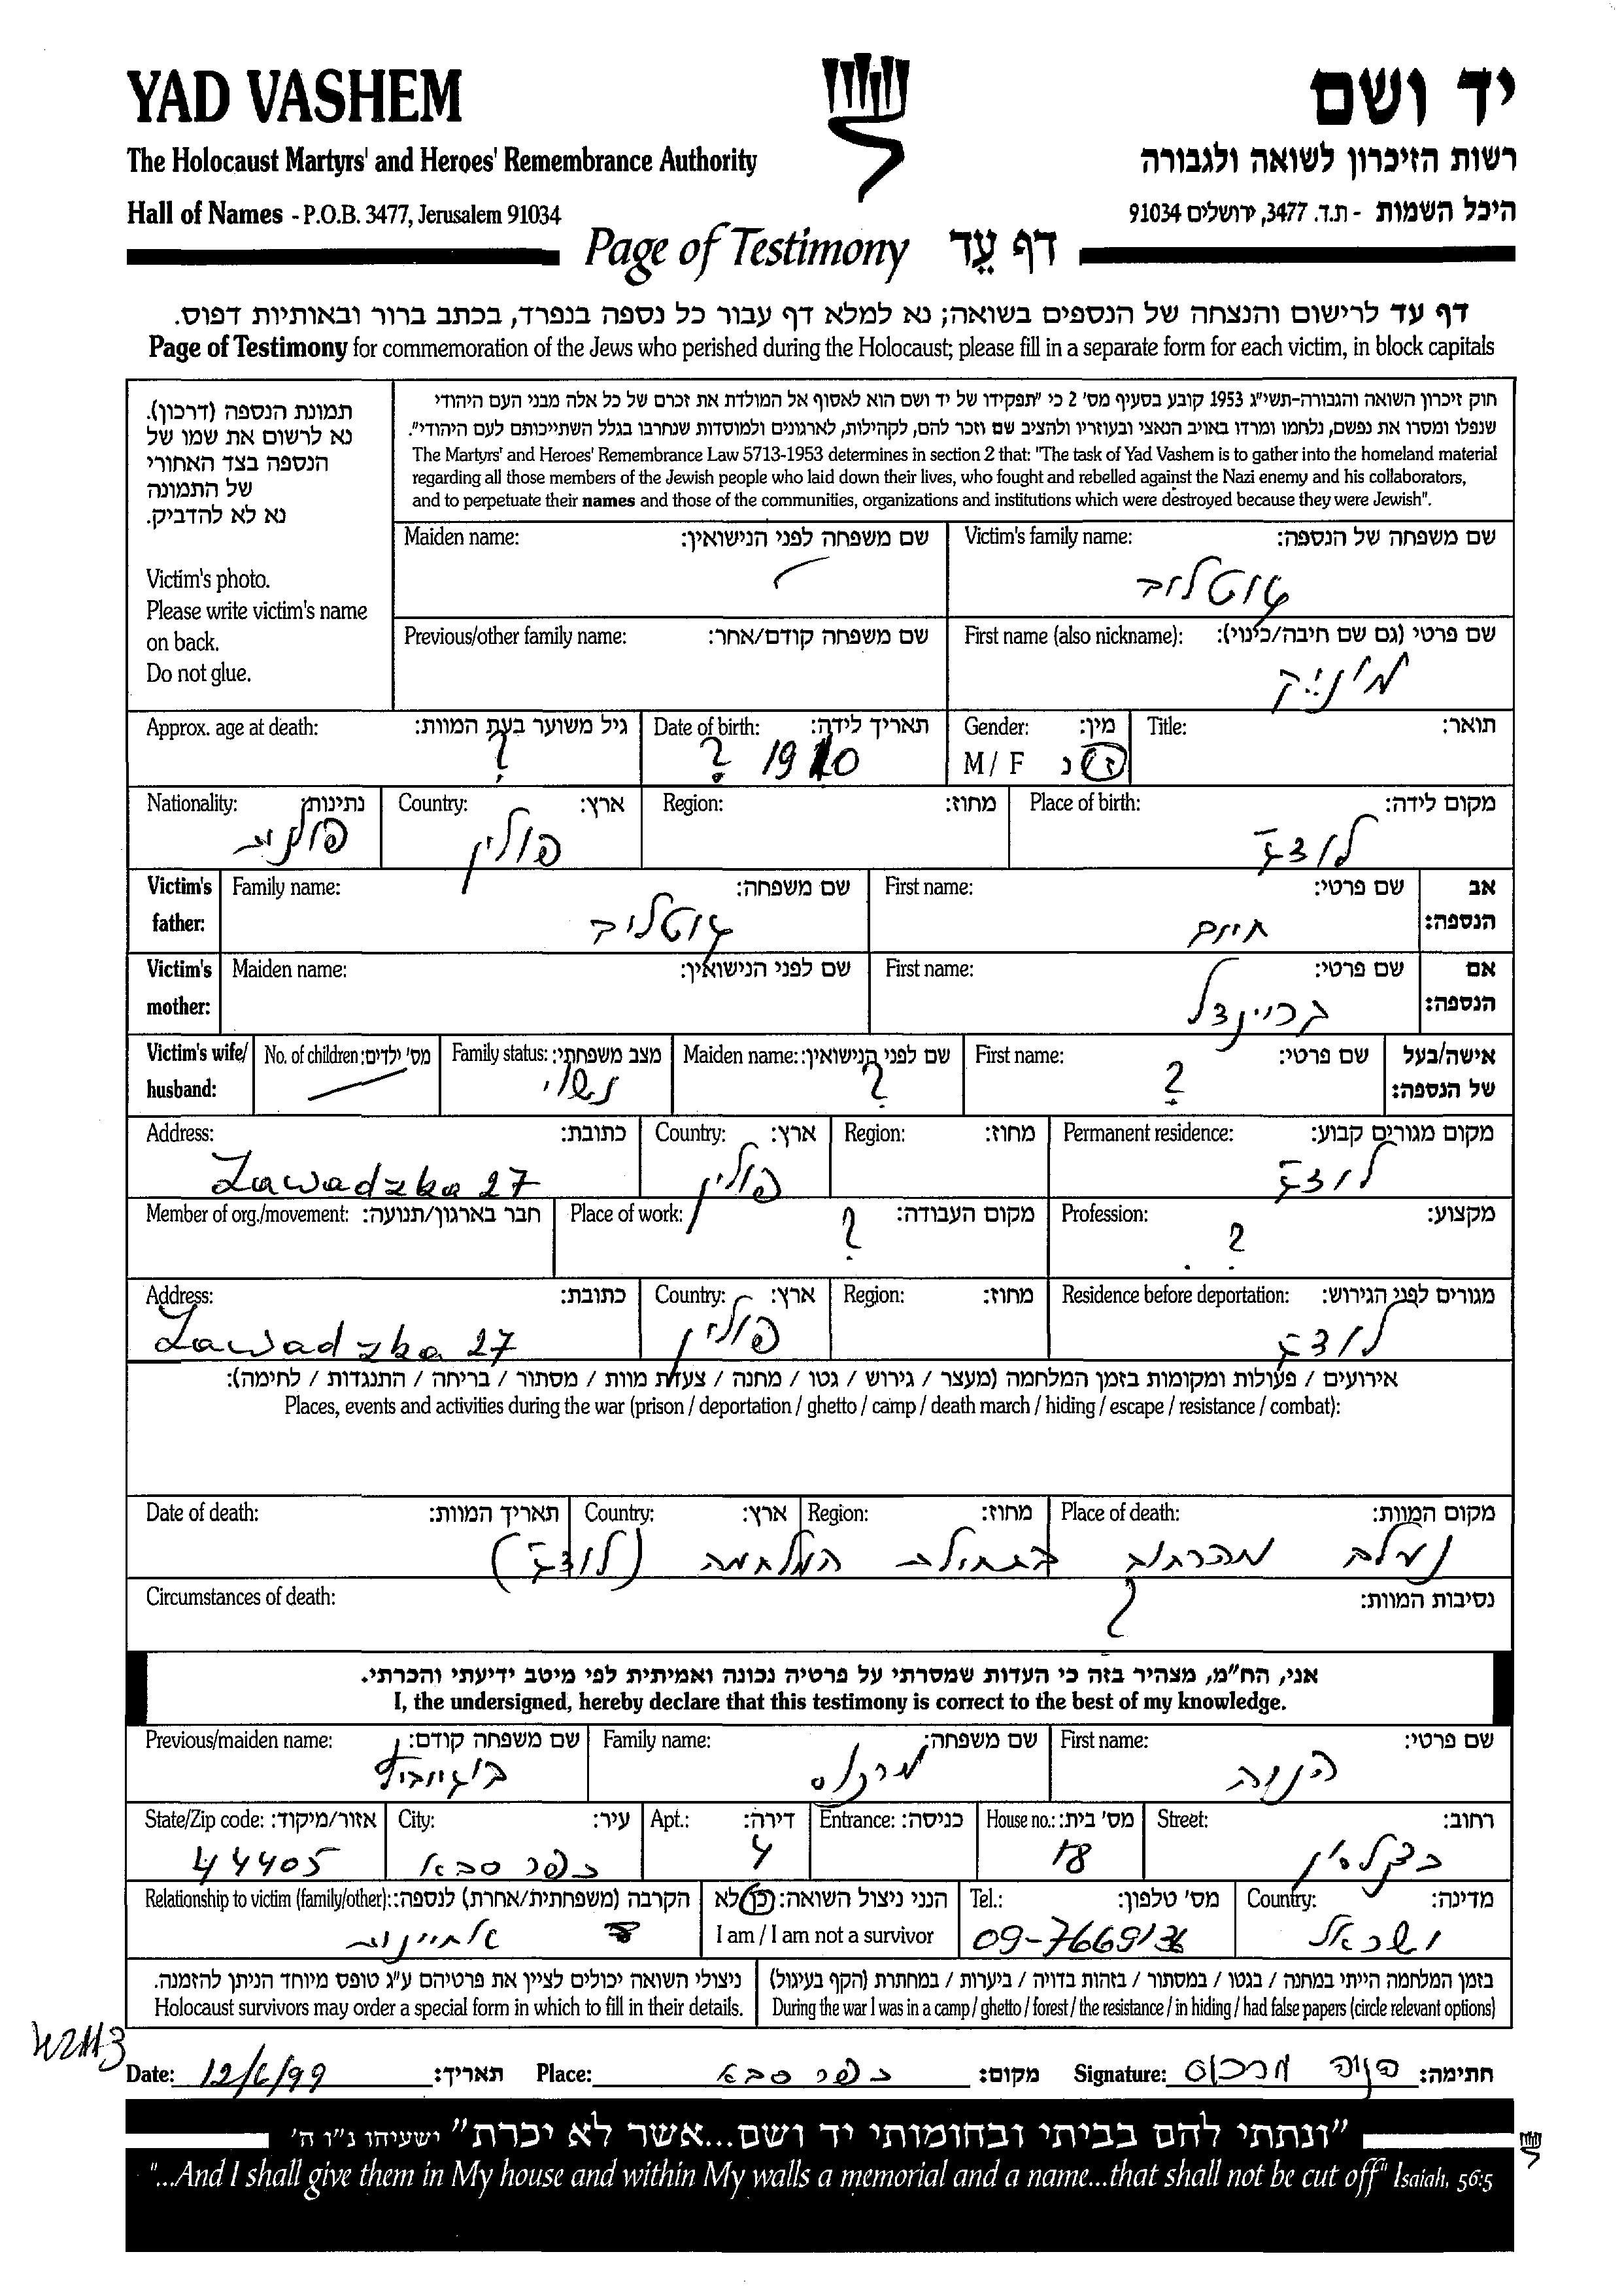 YAD VASHEM
יד ושם
The Holocaust Martyrs' and Heroes' Remembrance Authority
רשות הזיכרון לשואה ולגבורה
Hall of Names - P.O.B. 3477, Jerusalem 91034
היכל השמות - ת.ד. 3477, ירושלים 91034
Page of Testimony דף עֵד
דף עד לרישום והנצחה של הנספים בשואה; נא למלא דף עבור כל נספה בנפרד, בכתב ברור ובאותיות דפוס.
Page of Testimony for commemoration of the Jews who perished during the Holocaust; please fill in a separate form for each victim, in block capitals
תמונת הנספה (דרכון).
נא לרשום את שמו של
הנספה בצד האחורי
של התמונה
נא לא להדביק.
Victim's photo.
Please write victim's name
on back.
Do not glue.
חוק זיכרון השואה והגבורה-תשי"ג 1953 קובע בסעיף מס' 2 כי "תפקידו של יד ושם הוא לאסוף אל המולדת את זכרם של כל אלה מבני העם היהודי
שנפלו ומסרו את נפשם, נלחמו ומרדו באויב הנאצי ובעוזריו ולהציב שם וזכר להם, לקהילות, לארגונים ולמוסדות שנחרבו בגלל השתייכותם לעם היהודי".
The Martyrs' and Heroes' Remembrance Law 5713-1953 determines in section 2 that: "The task of Yad Vashem is to gather into the homeland material
regarding all those members of the Jewish people who laid down their lives, who fought and rebelled against the Nazi enemy and his collaborators,
and to perpetuate their names and those of the communities, organizations and institutions which were destroyed because they were Jewish".
Victim's family name: שם משפחה של הנספה:
גוטליב
Maiden name: שם משפחה לפני הנישואין:
First name (also nickname): שם פרטי (גם שם חיבה/כינוי):
מוניק
Previous/other family name: שם משפחה קודם/אחר:
Title: תואר:
Gender: מין:
M / F ז / נ
Date of birth: תאריך לידה:
? 1910
Approx. age at death: גיל משוער בעת המוות:
?
Place of birth: מקום לידה:
לודז
Region: מחוז:
Country: ארץ:
פולין
Nationality: נתינות:
פולנית
Victim's father: אב הנספה:
First name: שם פרטי:
חיים
Family name: שם משפחה:
גוטליב
Victim's mother: אם הנספה:
First name: שם פרטי:
בריינדל
Maiden name: שם לפני הנישואין:
Victim's wife/ husband: אישה/בעל של הנספה:
First name: שם פרטי:
?
Maiden name: שם לפני הנישואין:
?
Family status: מצב משפחתי:
נשוי
No. of children: מס' ילדים:
Permanent residence: מקום מגורים קבוע:
לודז
Region: מחוז:
Country: ארץ:
פולין
Address: כתובת:
Zawadzka 27
Profession: מקצוע:
?
Place of work: מקום העבודה:
?
Member of org./movement: חבר בארגון/תנועה:
Residence before deportation: מגורים לפני הגירוש:
לודז
Region: מחוז:
Country: ארץ:
פולין
Address: כתובת:
Zawadzka 27
אירועים / פעולות ומקומות בזמן המלחמה (מעצר / גירוש / גטו / מחנה / צעדת מוות / מסתור / בריחה / התנגדות / לחימה):
Places, events and activities during the war (prison / deportation / ghetto / camp / death march / hiding / escape / resistance / combat):
Place of death: מקום המוות:
Region: מחוז:
Country: ארץ:
Date of death: תאריך המוות:
נעלם מהרחוב בתחילת המלחמה (לודז)
Circumstances of death: נסיבות המוות:
?
אני, הח"מ, מצהיר בזה כי העדות שמסרתי על פרטיה נכונה ואמיתית לפי מיטב ידיעתי והכרתי.
I, the undersigned, hereby declare that this testimony is correct to the best of my knowledge.
First name: שם פרטי:
הניה
Family name: שם משפחה:
מרקוס
Previous/maiden name: שם משפחה קודם:
Street: רחוב:
House no.: מס' בית:
18
Entrance: כניסה:
Apt.: דירה:
4
City: עיר:
כפר סבא
State/Zip code: אזור/מיקוד:
44405
Country: מדינה:
ישראל
Tel.: מס' טלפון:
09-7669136
הנני ניצול השואה: כן / לא
I am / I am not a survivor
Relationship to victim (family/other): הקרבה (משפחתית/אחרת) לנספה:
אחיינית
בזמן המלחמה הייתי במחנה / בגטו / במסתור / בזהות בדויה / ביערות / במחתרת (הקף בעיגול)
During the war I was in a camp / ghetto / forest / the resistance / in hiding / had false papers (circle relevant options)
ניצולי השואה יכולים לציין את פרטיהם ע"ג טופס מיוחד הניתן להזמנה.
Holocaust survivors may order a special form in which to fill in their details.
Date: 12/6/99 תאריך: Place: כפר סבא מקום: Signature: הניה מרכוס חתימה:
"ונתתי להם בביתי ובחומותי יד ושם...אשר לא יכרת" ישעיהו נ"ו ה'
"...And I shall give them in My house and within My walls a memorial and a name...that shall not be cut off" Isaiah, 56:5